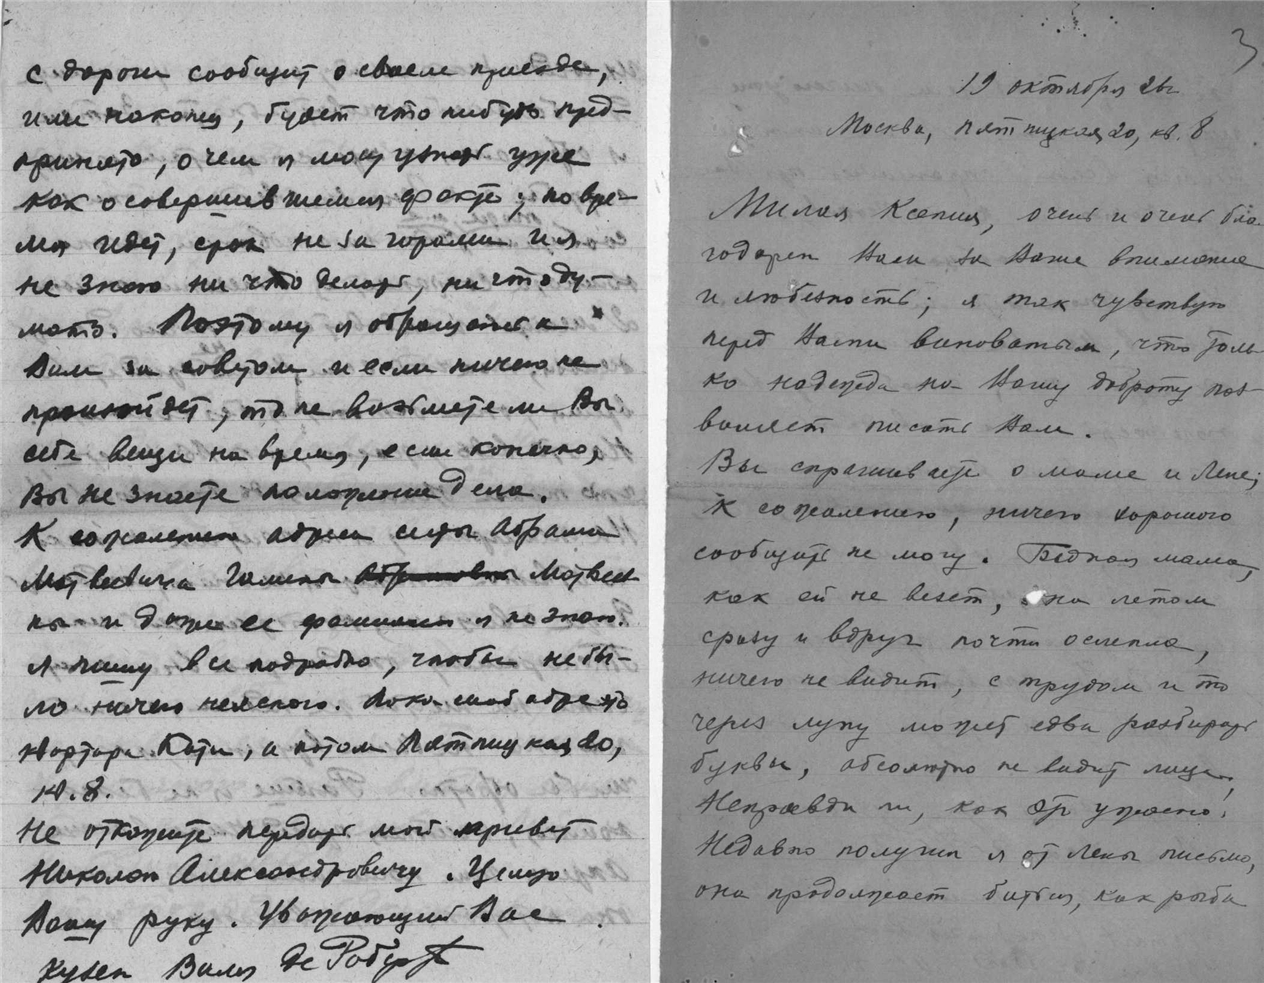 с дороги сообщит о своем приезде,
или наконец, будет что нибудь пред-
принято, о чем я могу узнать уже
как о совершившемся факте; но вре-
мя идет, срок не за горами и я
не знаю ни что делать, ни что ду-
мать. Поэтому я обращаюсь к
Вам за советом и если ничего не
произойдет, то не возьмете ли Вы
себе вещи на время, если конечно,
Вы не знаете положение дела.
К сожалению адреса сестры Абрама
Матвеевича Матвеев-
ны и даже ее фамилии я не знаю.
Я пишу все подробно, чтобы не бы-
ло ничего неясного. Пока мой адрес
квартира Кати, а потом Пятницкая 20,
кв. 8.
Не откажите передать мой привет
Николаю Александровичу. Целую
Вашу руку. Уважающий Вас
кузен Виля де Роберти
3
19 октября 26 г
Москва, Пятницкая 20, кв. 8
Милая Ксения, очень и очень бла-
годарен Вам за Ваше внимание
и любезность; я так чувствую
перед Вами виноватым, что толь-
ко надежда на Вашу доброту поз-
воляет писать Вам.
Вы спрашиваете о маме и Лене;
к сожалению, ничего хорошего
сообщить не могу. Бедная мама,
как ей не везет, она летом
сразу и вдруг почти ослепла,
ничего не видит, с трудом и то
через лупу может едва разбирать
буквы, абсолютно не видит лица,
Неправда ли, как это ужасно!
Недавно получил я от Лены письмо,
она продолжает биться, как рыба